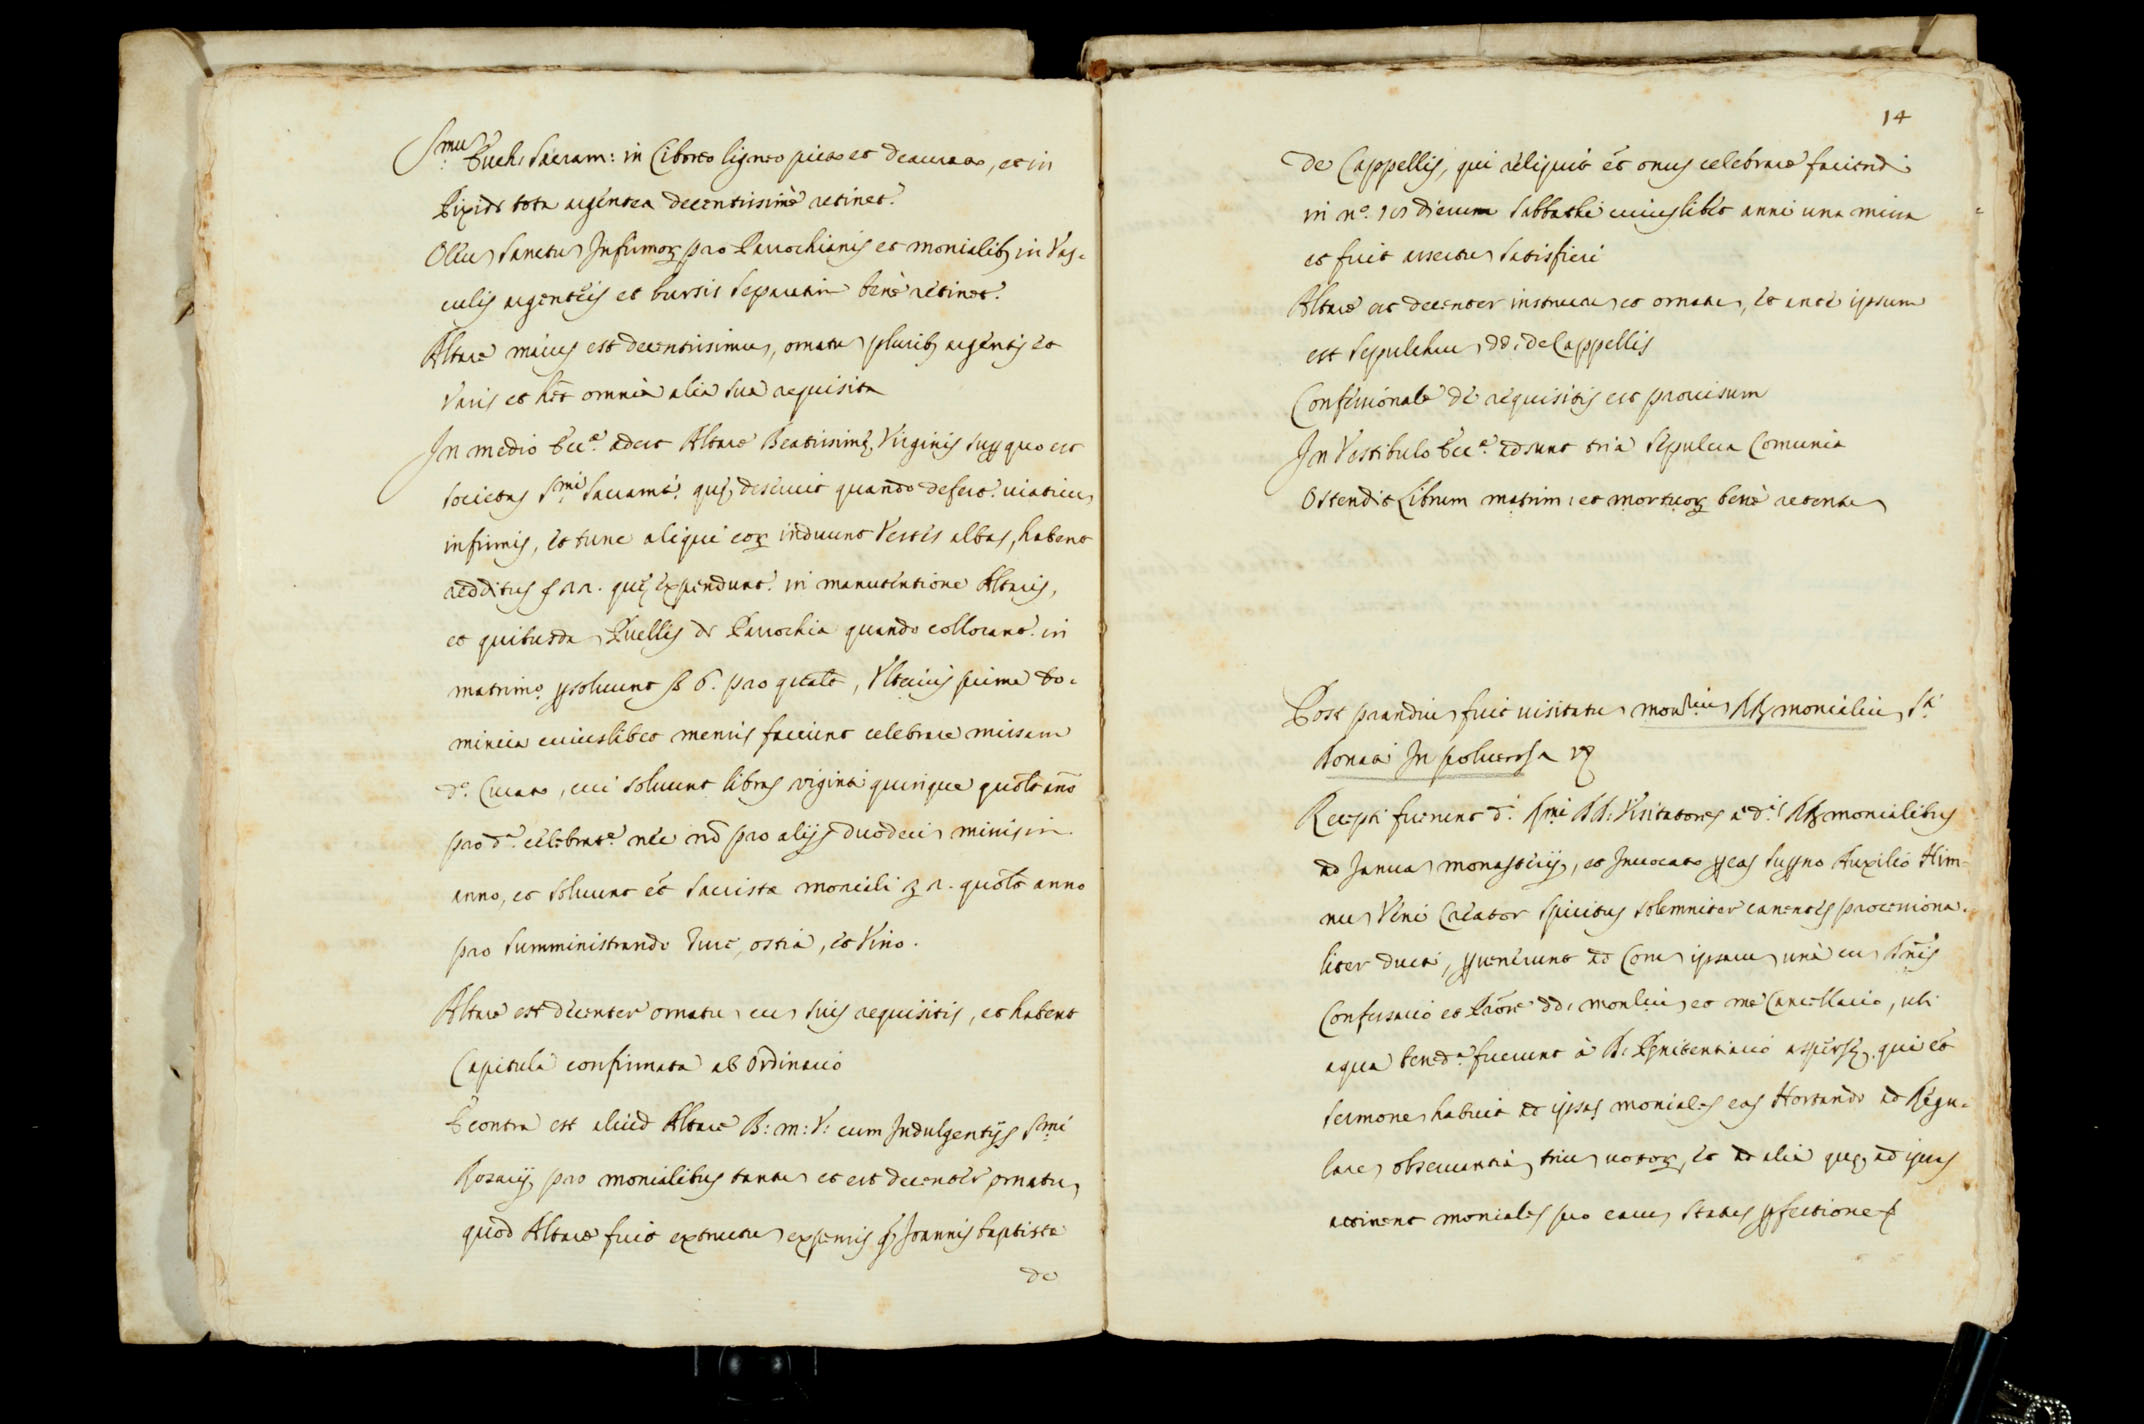 Smu Euch: Sacram: in Ciborio ligneo picto et deaurato, et in
Pixide tota argentea decentissimè retinet.
Oleu Sanctu Infirmoꝝ pro Parochianis et monialibꝫ in Vas-
culis argenteis et bursis separatim benè retinet.
Altare maius est decentissimu, ornatu pluribꝫ argentis et
Varis et hēt omnia alia sua requisita
In medio Ecc.ᵃ adest Altare Beatissimę Virginis supꝑ quo est
societas Smi Sacramti quę deservit quando defert. viaticu
infirmis, et tunc aliqui eoꝝ induunt Vestes albas, habent
redditus quę expendunt. in manutentione Altaris,
et quibusda Puellis de Parochia quando collocant. in
matrimo ꝑsolvunt 6. pro qualt, Ulterius prima do-
minica cuiuslibet mensis faciunt celebrare missam
d.º Curato, cui solvunt libras viginti quinque quolt año
pro d.ᵃ celebrat.ᵉ nec nō pro alijs duodeci missis in
anno, et solvunt ēt Sacristæ moniali quolt anno
pro sumministrando Ture, ostia, et Vino.
Altare est decenter ornatu cu suis requisitis, et habent
Capitula confirmata ab Ordinario
E contra est aliud Altare B: m: V: cum Indulgentijs Smi
Rosarij pro monialibus tantu et est decenter ornatu,
quod Altare fuit extructu expensis q. Joannis baptistæ
de
14
de Cappellis, qui reliquit ēt onus celebrare faciendi
in n.º dierum Sabbathi cuiuslibet anni una missa
et fuit assertu satisfieri
Altare est decenter instructu et ornatu, et ante ipsum
est sepulchru dd. de Cappellis
Confessionale de requisitis est provisum
In Vestibulo Ecc.ᵉ adsunt tria sepulcra Comunia
Ostendit Librum matrim: et mortuoꝝ benè retentu
Post prandiu fuit visitatu monriu RR monialiu Sti
Donati In polverosa
Recepti fuerunt d.i Rmi DD: Visitatores a d.i RR monialibus
ad Janua monasterij, et Invocato ꝑ eas Supꝑno Auxilio Him-
nu Veni Creator Spiritus solemniter canentes processiona-
liter ducti, ꝑvenerunt ad Coru ipsaru unà cu
Confessario et Priore dd. monliu et me Cancellario, ubi
aqua bened.ᵃ fuerunt à D: Pęnitentiario aspersę. qui ēt
sermone habuit ad ipsas moniales eas Hortando ad Regu-
lare observantia triu votoꝝ, et ad alia quę ad ipsas
attinent moniales pro earu status ꝑfectione